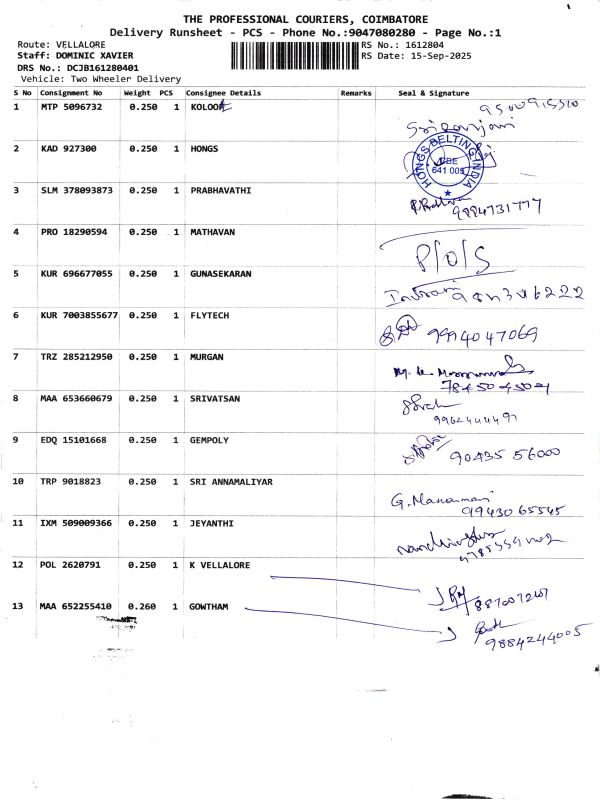 THE PROFESSIONAL COURIERS, COIMBATORE
Delivery Runsheet - PCS - Phone No.:9047080280 - Page No.:1
Route: VELLALORE RS No.: 1612804
Staff: DOMINIC XAVIER RS Date: 15-Sep-2025
DRS No.: DCJB161280401
Vehicle: Two Wheeler Delivery
S No Consignment No Weight PCS Consignee Details Remarks Seal & Signature
1 MTP 5096732 0.250 1
2 KAD 927300 0.250 1 HONGS
HONGS BELTING INDIA
CBE
641 005
3 SLM 378093873 0.250 1 PRABHAVATHI
9994731777
4 PRO 18290594 0.250 1 MATHAVAN
P/O/S
5 KUR 696677055 0.250 1 GUNASEKARAN
6 KUR 7003855677 0.250 1 FLYTECH
9994047069
7 TRZ 285212950 0.250 1 MURGAN
8 MAA 653660679 0.250 1 SRIVATSAN
9 EDQ 15101668 0.250 1 GEMPOLY
90435 56000
10 TRP 9018823 0.250 1 SRI ANNAMALIYAR
99430 65545
11 IXM 509009366 0.250 1 JEYANTHI
12 POL 2620791 0.250 1 K VELLALORE
13 MAA 652255410 0.260 1 GOWTHAM
9884244005